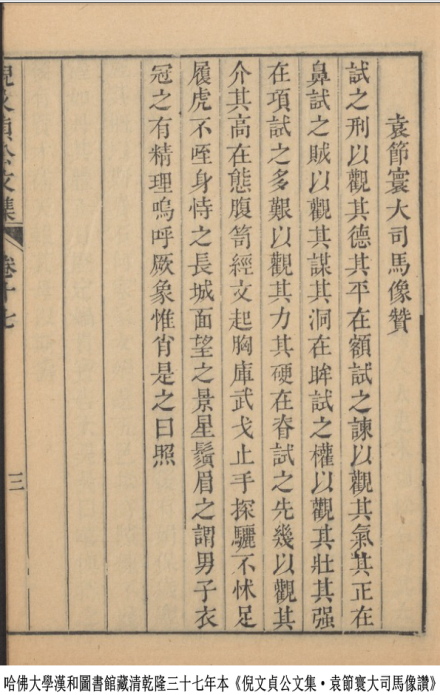 袁節寰大司馬像贊
試之刑以觀其德其平在額試之諫以觀其氣其正在
鼻試之賊以觀其謀其洞在眸試之權以觀其壯其强
在項試之多艱以觀其力其硬在脊試之先幾以觀其
介其高在態腹笥經文起胸庫武戈止手探驪不怵足
履虎不咥身恃之長城面望之景星鬚眉之謂男子衣
冠之有精理嗚呼厥象惟肖是之曰照
倪文貞公文集
卷十七
三
哈佛大學漢和圖書館藏清乾隆三十七年本《倪文貞公文集·袁節寰大司馬像讚》